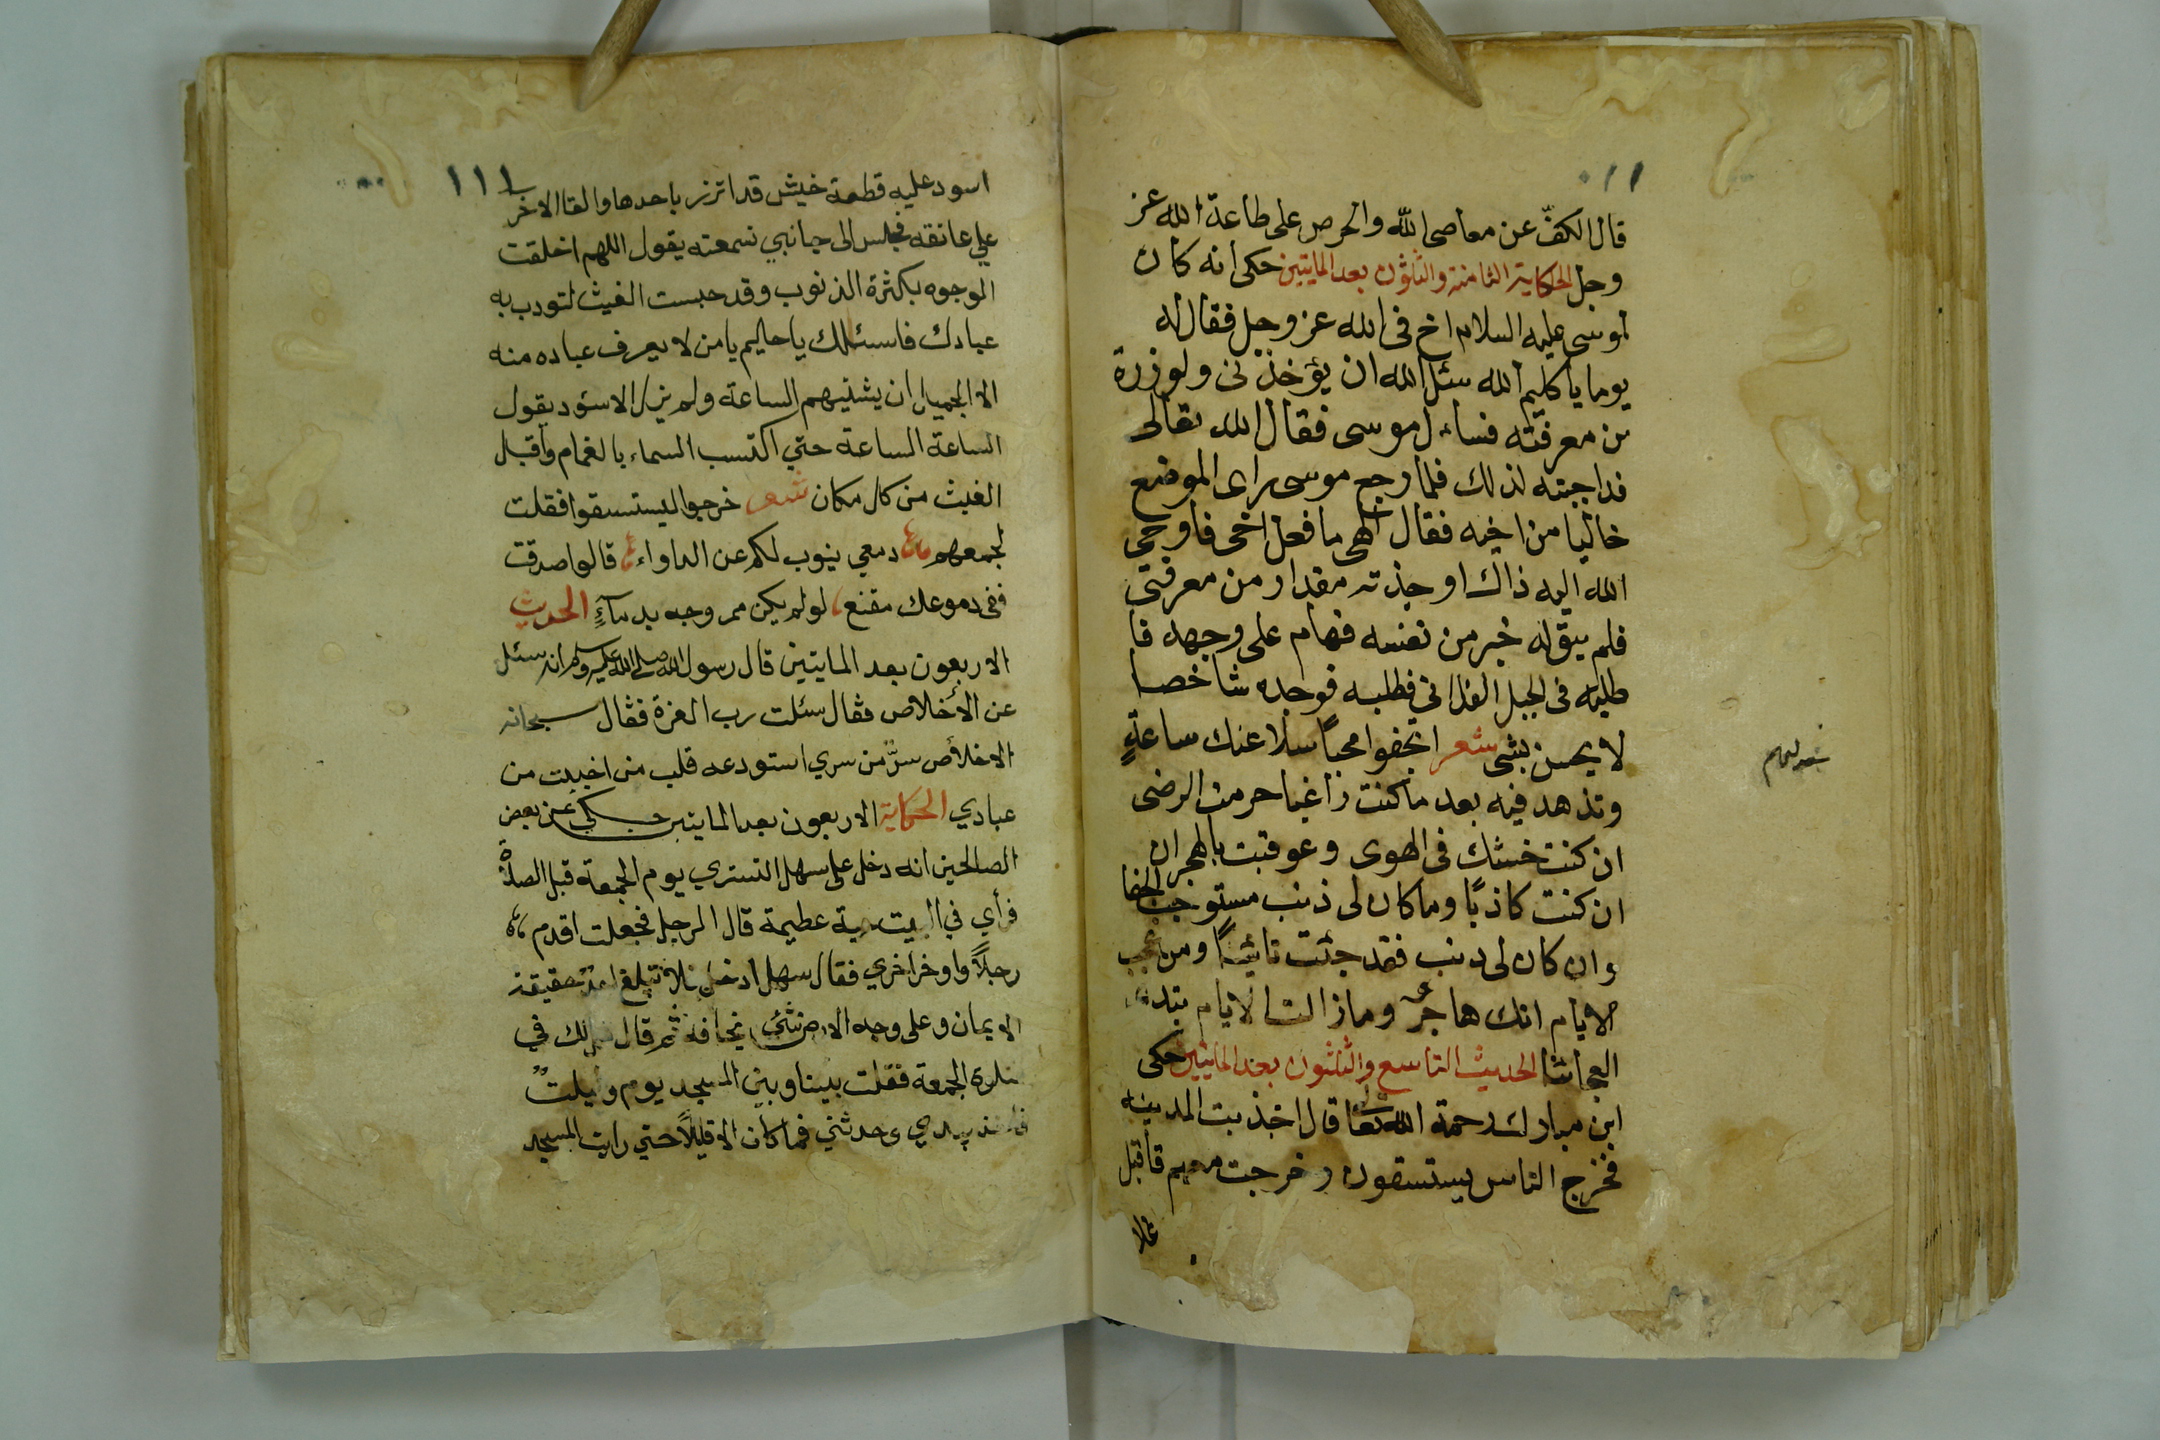 قال الكفّ عن معاصى الله والحرص على طاعة الله عز
وجل الحكاية الثامنة والثلثون بعد المايتين حكى انه كان
لموسى عليه السلام اخ فى الله عز وجل فقال له
يوما يا كليم الله سئل الله ان يؤخذنى ولو ذرة
من معرفته فساءل موسى فقال الله تعالى
قد اجبته لذلك فلما رجع موسى راى الموضع
خاليا من اخيه فقال الهى ما فعل اخى فاوحى
الله اليه ذاك او جذته مقدار من معرفتى
فلم يبق له خبر من نفسه فهام على وجهه فا
طلبه فى الجبل الفلانى فطلبه فوجده شاخصا
لا يحسن بشى شعر اتجفوا محباً سلا عنك ساعةٍ
وتذهد فيه بعد ما كنت راغبا حرمت الرضى
ان كنت خنتك فى الهوى وعوقبت بالهجران
ان كنت كاذبًا وما كان لى ذنب مستوجب الجفا
وان كان لى ذنب فقد جئت تائباً ومن عجب
الايام انك هاجر وما زالت الايام تبدى
العجائبا الحديث التاسع والثلثون بعد المايتين حكى
ابن مبارك رحمة الله تعا قال اخذ بت المدينه
فخرج الناس يستسقون وخرجت معهم فاقبل
١١١
اسود عليه قطعة خيش قد اتزر باحدها والقا الاخر
علي عاتقه فجلس الى جانبي نسمعته يقول اللهم اخلقت
الوجوه بكثرة الذنوب وقد حبست الغيث لتودب به
عبادك فاسئلك يا حاليم يا من لا يعرف عباده منه
الا الجميل ان يشتيهم الساعة ولم يزل الاسؤد يقول
الساعة الساعة حتي اكتسب السماء بالغمام وأقبل
الغيث من كل مكان شعر خرجوا ليستسقوا فقلت
لجمعهم دمعي ينوب لكم عن الداواء قالوا صدقت
ففى دموعك مقنع لو لم يكن ممروجه بدماءٍ الحديث
الاربعون بعد المايتين قال رسول الله صلى الله عليه وسلم انه سئل
عن الأخلاص فقال سئلت رب العزة فقال سبحانه
الاخلاص سرٌّ من سري استودعه قلب من احببت من
عبادي الحكاية الاربعون بعد المايتين حكي عن بعض
الصالحين انه دخل على سهل التستري يوم الجمعة قبل الصلاة
فرأي في البيت حية عطيمة قال الرجل فجعلت اقدم
رجلاً واوخر اخري فقال سهل ادخل لا تبلغ احد حقيقة
الايمان وعلى وجه الارض شئ يخافه ثم قال لك في
صلوة الجمعة فقلت بيننا وبين المسجد يوم وليلتٌ
فاخذ بيدي وحدثني فما كان الا قليلاً حتي رايت المسجد